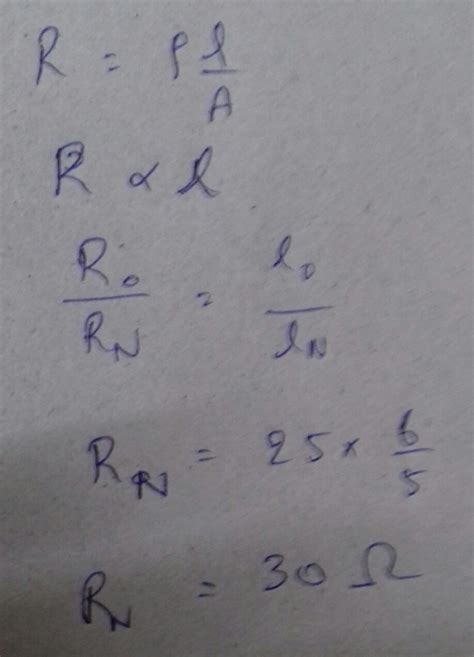 R = ρ l/A
R ∝ l
R₀/R_N = l₀/l_N
R_N = 25 × 6/5
R_N = 30 Ω